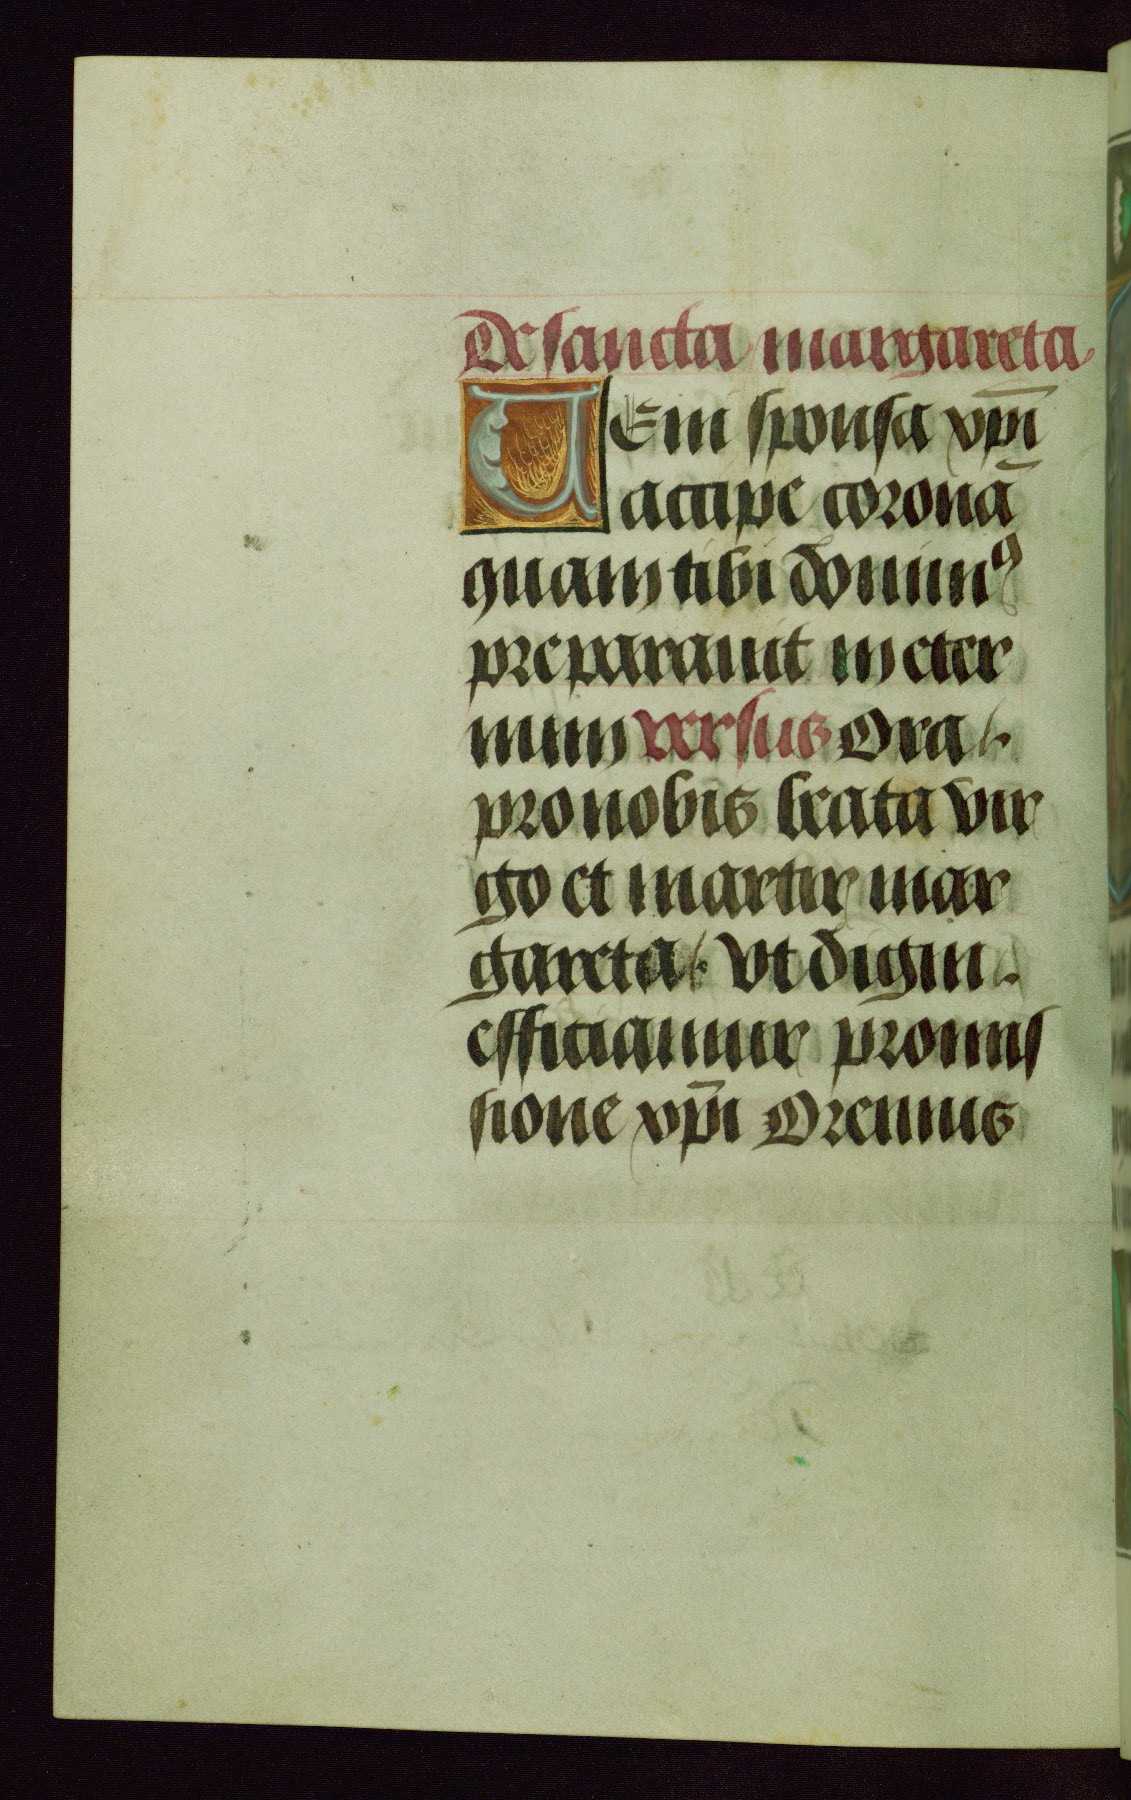 De sancta margareta
UEni sponsa xp̄i
accipe coronā
quam tibi dominꝰ
preparauit in eter
num versus Ora /.
pro nobis beata vir
go et martir mar
gareta /. Vt digni .
efficiamur promis
sione xp̄i Oremus